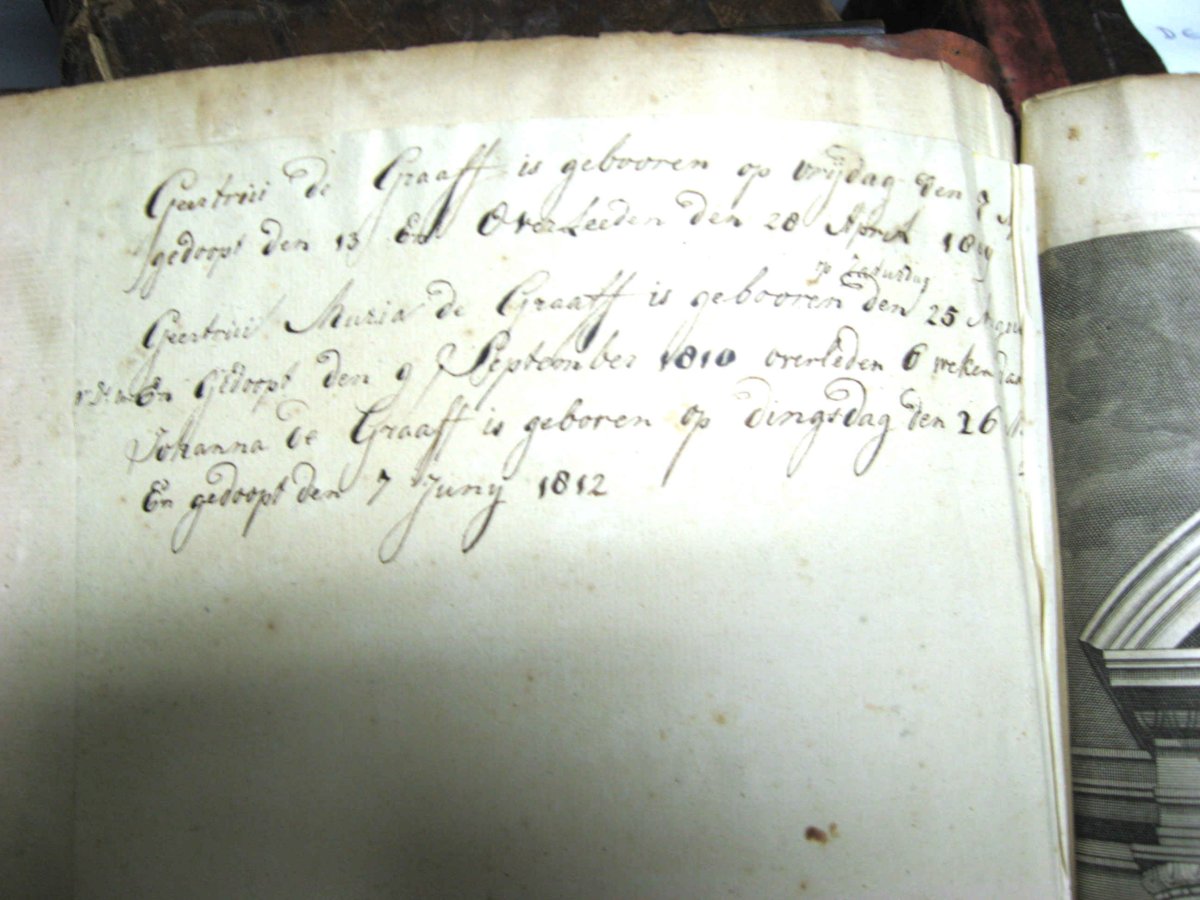 Geertrui de Graaff is gebooren op vrijdag den 7
gedoopt den 13 En Overleeden den 28 April 18
op Zaturdag
Geertrui Maria de Graaff is gebooren den 25
En Gedoopt den 9 September 1810 overleden 6 weken
Johanna de Graaff is geboren op dingsdag den 26
En gedoopt den 7 Juny 1812
DE